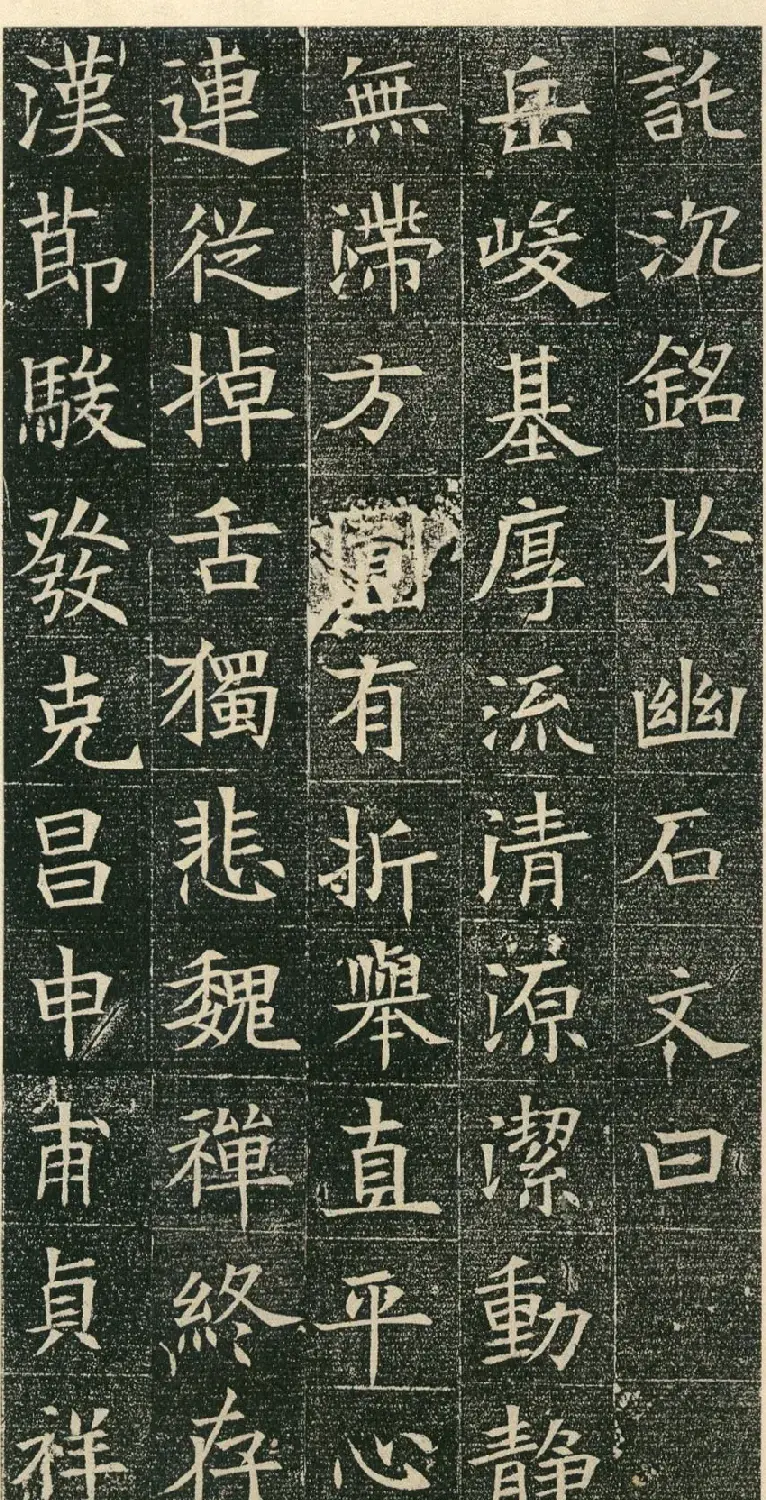 託沉銘於幽石文曰
岳峻基厚流清源潔動靜
無滯方圓有折舉直平心
連從掉舌獨悲魏禪終存
漢莭駿發克昌申甫貞祥